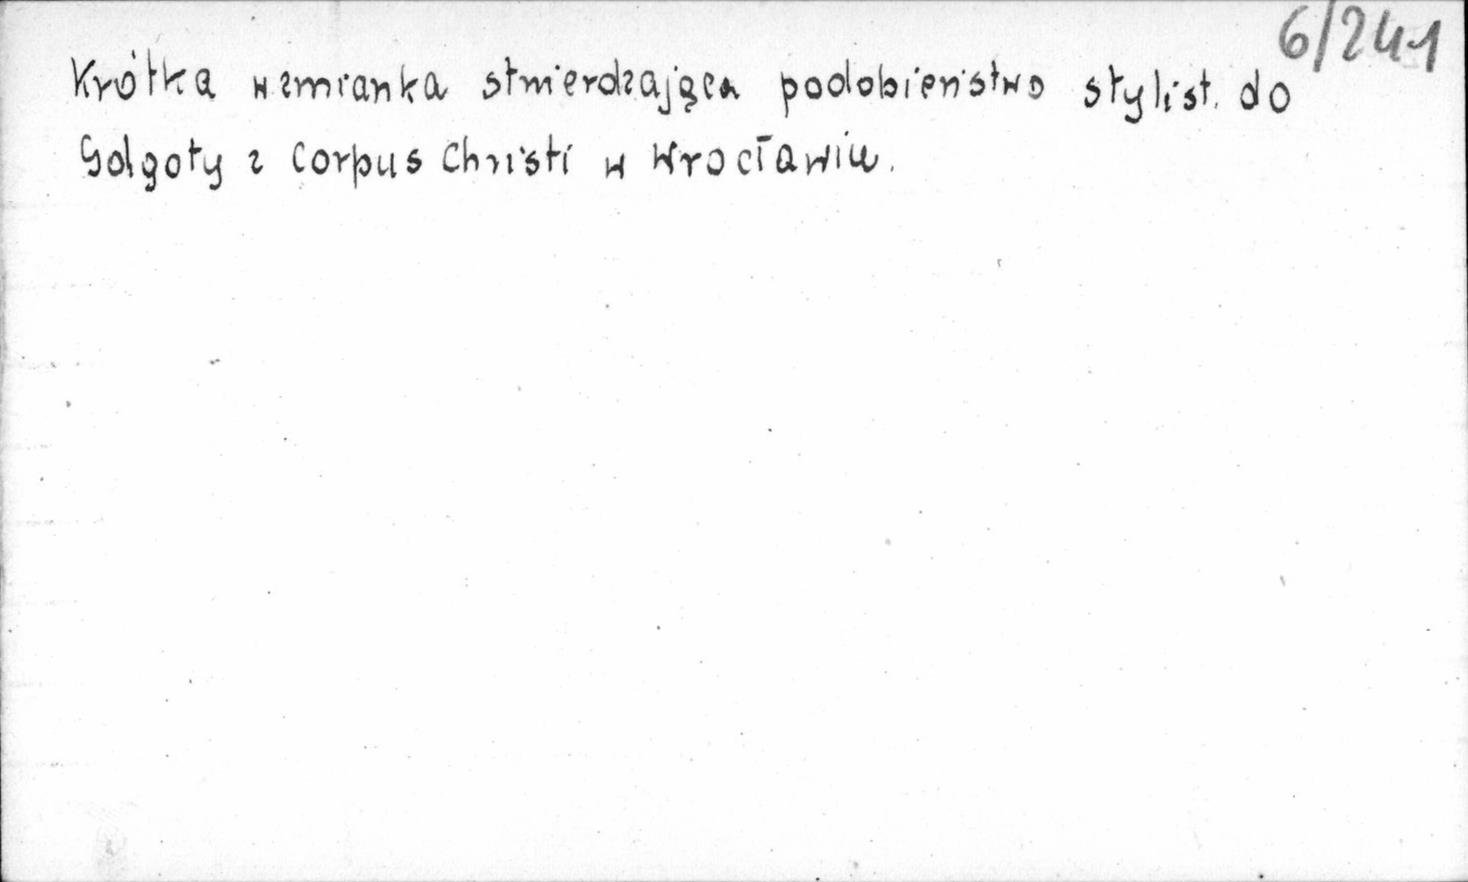 6/241
Krótka wzmianka stwierdzająca podobieństwo stylist. do
Golgoty z Corpus Christi w Wrocławiu.